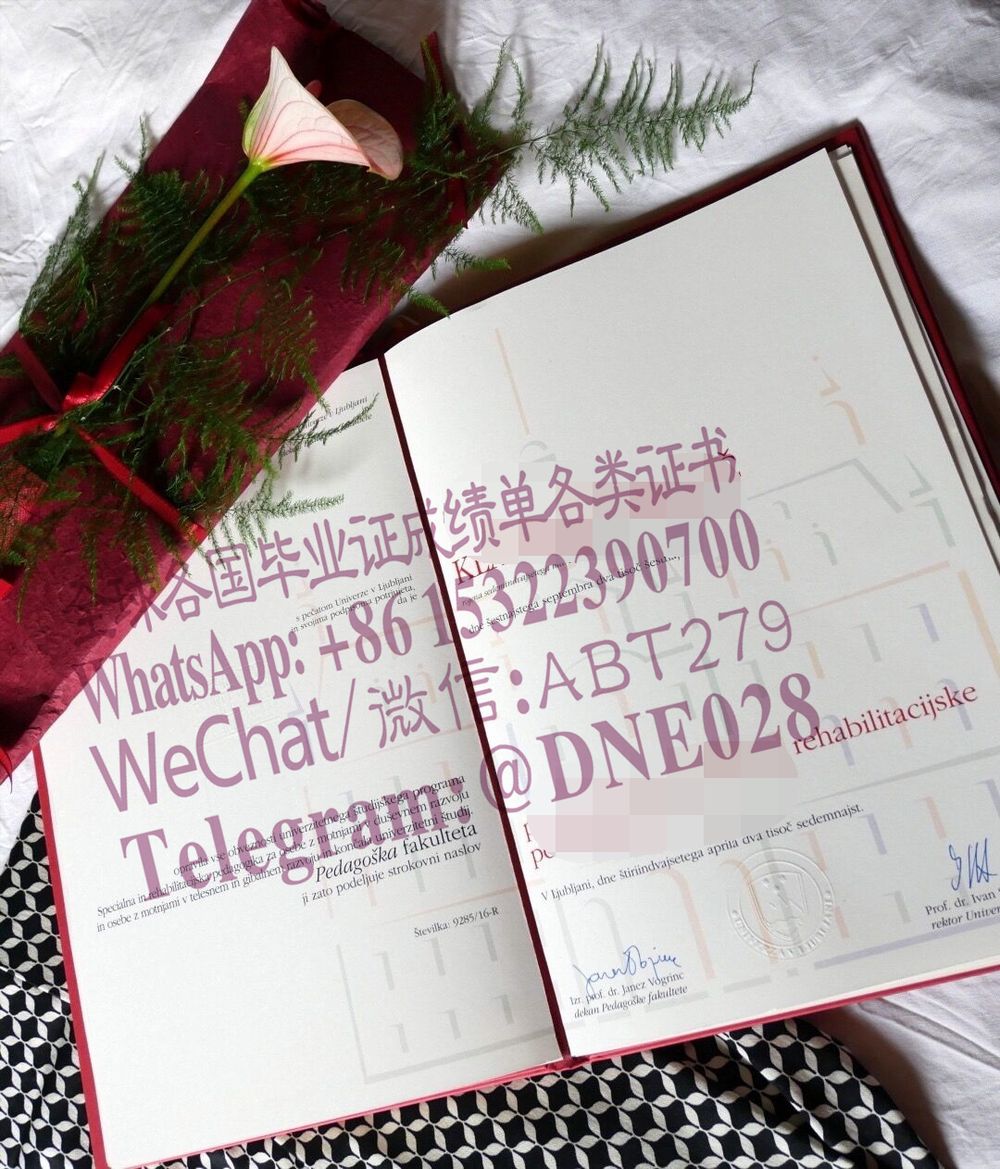 各国毕业证成绩单各类证书
WhatsApp: +86 15322390700
WeChat/微信:ABT279
Telegram: @DNE028
Univerze v Ljubljani
s pečatom Univerze v Ljubljani
in svojima podpisoma potrjujeta,
da je
opravila vse obveznosti univerzitetnega študijskega programa
Specialna in rehabilitacijska pedagogika za osebe z motnjami v duševnem razvoju
in osebe z motnjami v telesnem in gibalnem razvoju in končala univerzitetni študij.
Pedagoška fakulteta
ji zato podeljuje strokovni naslov
Številka: 9285/16-R
dne šestnajstega septembra dva tisoč
rehabilitacijske
V Ljubljani, dne štiriindvajsetega aprila dva tisoč sedemnajst.
Izr. prof. dr. Janez Vogrinc
dekan Pedagoške fakultete
Prof. dr. Ivan
rektor Univer